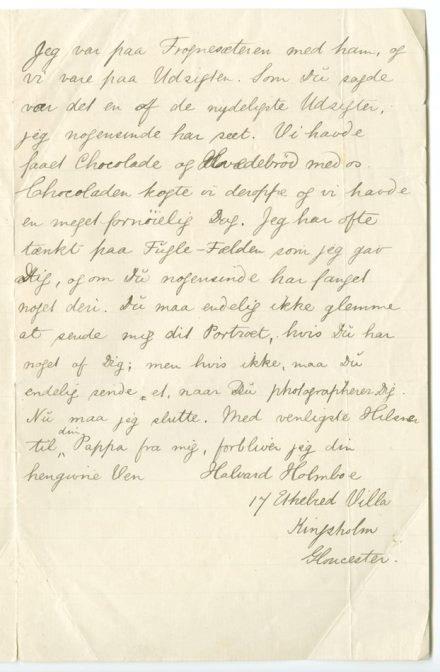 Jeg var paa Frognesæteren med ham, og
vi vare paa Udsigten. Som Dŭ sagde
var det en af de nydeligste Udsigter,
jeg nogensinde har seet. Vi havde
faaet Chocolade og Hvedebröd med os.
Chocoladen kogte vi deroppe og vi havde
en meget fornöielig Dag. Jeg har ofte
tænkt paa Fŭgle-Fælden som jeg gav
Dig, og om Dŭ nogensinde har fanget
noget deri. Dŭ maa endelig ikke glemme
at sende mig dit Portræt, hvis Dŭ har
noget af Dig; men hvis ikke, maa Dŭ
endelig sende et, naar Dŭ photographerer Dig.
Nŭ maa jeg slutte. Med venligste Hilsner
til din Pappa fra mig, forbliver jeg din
hengivne Ven Halvard Holmboe
17 Ethelred Villa
Kingsholm
Gloucester.